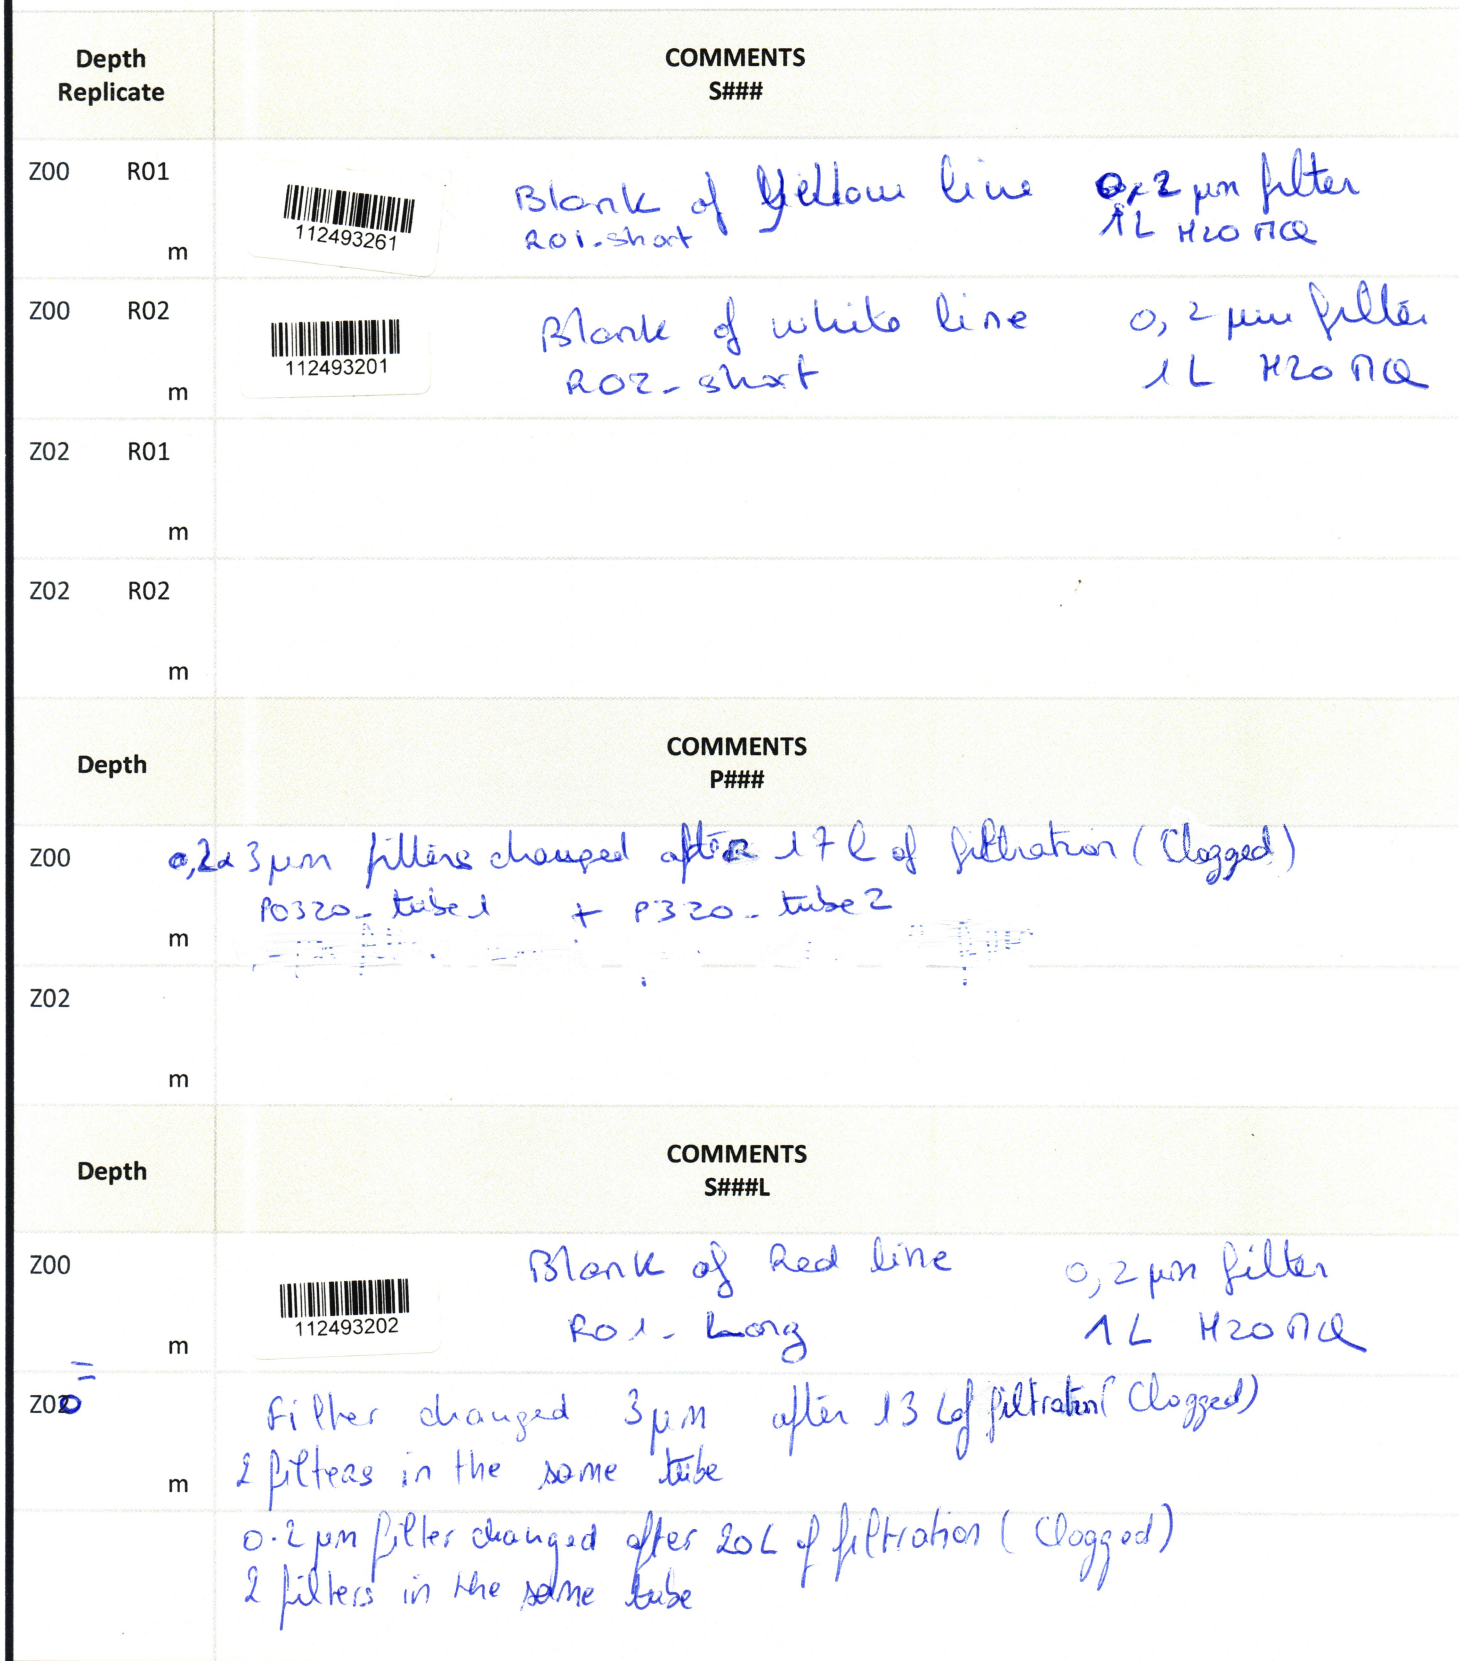 Depth
Replicate
COMMENTS
S###
Z00 R01
m
112493261
Blank of Yellow line 0,2 µm filter
R01-short 1L H2O MQ
Z00 R02
m
112493201
Blank of white line 0,2 µm filter
R02-short 1L H2O MQ
Z02 R01
m
Z02 R02
m
Depth
COMMENTS
P###
Z00
m
3µm filters changed after 17 l of filtration (Clogged)
P0320-tube1 + P320-tube2
Z02
m
Depth
COMMENTS
S###L
Z00
m
112493202
Blank of Red line 0,2 µm filter
R01-Long 1L H2O MQ
Z00
m
Filter changed 3µm after 13 L of filtration (Clogged)
2 filters in the same tube
0.2 µm filter changed after 20L of filtration (Clogged)
2 filters in the same tube